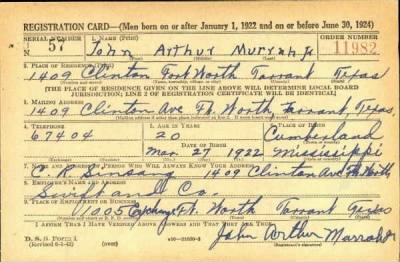 REGISTRATION CARD—(Men born on or after January 1, 1922 and on or before June 30, 1924)
SERIAL NUMBER N 57 1. NAME (Print) ORDER NUMBER
John Arthur Murrah Jr 11982
2. PLACE OF RESIDENCE (Print)
1409 Clinton Fort Worth Tarrant Texas
(Number and street) (Town, township, village, or city) (County) (State)
[THE PLACE OF RESIDENCE GIVEN ON THE LINE ABOVE WILL DETERMINE LOCAL BOARD
JURISDICTION; LINE 2 OF REGISTRATION CERTIFICATE WILL BE IDENTICAL]
3. MAILING ADDRESS
1409 Clinton Ave Ft. Worth Tarrant Texas.
4. TELEPHONE 5. AGE IN YEARS 6. PLACE OF BIRTH
67404 20 Cumberland
DATE OF BIRTH
Mar. 27 1922 Mississippi
7. NAME AND ADDRESS OF PERSON WHO WILL ALWAYS KNOW YOUR ADDRESS
C. R. 1409 Clinton Ave Ft. Worth
8. EMPLOYER'S NAME AND ADDRESS
Swift and Co.
9. PLACE OF EMPLOYMENT OR BUSINESS
1005 Exchange Ft. Worth Tarrant Texas
I AFFIRM THAT I HAVE VERIFIED ABOVE ANSWERS AND THAT THEY ARE TRUE.
D. S. S. Form 1
(Revised 6-1-42) John Arthur Murrah Jr
(Registrant's signature)